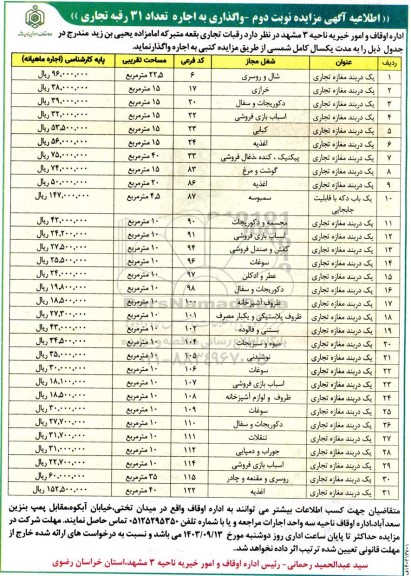 <<اطلاعیه آگهی مزایده نوبت دوم -واگذاری به اجاره تعداد ۳۱ رقبه تجاری >>
اداره اوقاف و امور خیریه ناحیه ۳ مشهد در نظر دارد رقبات تجاری بقعه متبرکه امامزاده یحیی بن زید مندرج در
جدول ذیل را به مدت یکسال کامل شمسی از طریق مزایده کتبی به اجاره واگذار نماید.
ردیف عنوان شغل مجاز کد فرعی مساحت تقریبی پایه کارشناسی (اجاره ماهیانه)
۱ یک دربند مغازه تجاری شال و روسری ۶ ۲۲,۵ مترمربع ۹۶,۰۰۰,۰۰۰ ریال
۲ یک دربند مغازه تجاری خرازی ۱۷ ۱۵ مترمربع ۳۸,۰۰۰,۰۰۰ ریال
۳ یک دربند مغازه تجاری دکوریجات و سفال ۲۰ ۱۵ مترمربع ۳۹,۰۰۰,۰۰۰ ریال
۴ یک دربند مغازه تجاری اسباب بازی فروشی ۲۲ ۱۵ مترمربع ۳۲,۰۰۰,۰۰۰ ریال
۵ یک دربند مغازه تجاری کبابی ۲۳ ۱۵ مترمربع ۵۳,۵۰۰,۰۰۰ ریال
۶ یک دربند مغازه تجاری اغذیه ۲۴ ۱۵ مترمربع ۵۶,۰۰۰,۰۰۰ ریال
۷ یک دربند مغازه تجاری پیکنیک ، کنده ،ذغال فروشی ۳۳ ۴۰ مترمربع ۷۵,۰۰۰,۰۰۰ ریال
۸ یک دربند مغازه تجاری گوشت و مرغ ۸۳ ۱۵ مترمربع ۷۴,۰۰۰,۰۰۰ ریال
۹ یک دربند مغازه تجاری اغذیه ۸۶ ۲۰ مترمربع ۵۰,۰۰۰,۰۰۰ ریال
۱۰ یک باب دکه با قابلیت سمبوسه ۸۷ ۴,۵ مترمربع ۱۴۷,۰۰۰,۰۰۰ ریال
جابجایی
۱۱ یک دربند مغازه تجاری مجسمه و دکوریجات ۹۰ ۱۰ مترمربع ۴۲,۰۰۰,۰۰۰ ریال
۱۲ یک دربند مغازه تجاری اسباب بازی فروشی ۹۱ ۱۰ مترمربع ۲۴,۲۰۰,۰۰۰ ریال
۱۳ یک دربند مغازه تجاری کفش و صندل فروشی ۹۴ ۱۰ مترمربع ۲۷,۵۰۰,۰۰۰ ریال
۱۴ یک دربند مغازه تجاری سوغات ۹۶ ۱۰ مترمربع ۲۵,۵۰۰,۰۰۰ ریال
۱۵ یک دربند مغازه تجاری عطر و ادکلن ۹۷ ۱۰ مترمربع ۲۴,۰۰۰,۰۰۰ ریال
۱۶ یک دربند مغازه تجاری دکوریجات و سفال ۹۸ ۱۰ مترمربع ۱۹,۸۰۰,۰۰۰ ریال
۱۷ یک دربند مغازه تجاری ظروف آشپزخانه ۱۰۰ ۱۰ مترمربع ۱۸,۵۰۰,۰۰۰ ریال
۱۸ یک دربند مغازه تجاری ظروف پلاستیکی و یکبار مصرف ۱۰۱ ۱۰ مترمربع ۲۷,۳۰۰,۰۰۰ ریال
۱۹ یک دربند مغازه تجاری بستنی و فالوده ۱۰۲ ۱۰ مترمربع ۴۳,۰۰۰,۰۰۰ ریال
۲۰ یک دربند مغازه تجاری میوه و سبزیجات ۱۰ مترمربع ۳۴,۵۰۰,۰۰۰ ریال
۲۱ یک دربند مغازه تجاری نوشیدنی ۱۰۵ ۱۰ مترمربع ۲۵,۰۰۰,۰۰۰ ریال
۲۲ یک دربند مغازه تجاری سوغات ۱۰۶ ۱۰ مترمربع ۳۰,۰۰۰,۰۰۰ ریال
۲۳ یک دربند مغازه تجاری اسباب بازی فروشی ۱۰۷ ۱۰ مترمربع ۱۸,۱۰۰,۰۰۰ ریال
۲۴ یک دربند مغازه تجاری ظروف و لوازم آشپزخانه ۱۰۸ ۱۰ مترمربع ۱۸,۵۰۰,۰۰۰ ریال
۲۵ یک دربند مغازه تجاری سوغات ۱۰۹ ۱۰ مترمربع ۳۰,۰۰۰,۰۰۰ ریال
۲۶ یک دربند مغازه تجاری دکوریجات و سفال ۱۱۰ ۱۰ مترمربع ۲۷,۷۰۰,۰۰۰ ریال
۲۷ یک دربند مغازه تجاری تنقلات ۱۱۱ ۱۰ مترمربع ۳۱,۷۰۰,۰۰۰ ریال
۲۸ یک دربند مغازه تجاری جوراب و دمپایی ۱۱۲ ۱۰ مترمربع ۳۱,۰۰۰,۰۰۰ ریال
۲۹ یک دربند مغازه تجاری اسباب بازی فروشی ۱۱۴ ۱۰ مترمربع ۲۲,۷۰۰,۰۰۰ ریال
۳۰ یک دربند مغازه تجاری روسری و مقنعه و چادر ۱۱۵ ۳۵ مترمربع ۶۰,۰۰۰,۰۰۰ ریال
۳۱ یک دربند مغازه تجاری اغذیه ۱۲۲ ۴۰ مترمربع ۱۵۲,۵۰۰,۰۰۰ ریال
متقاضیان جهت کسب اطلاعات بیشتر می توانند به اداره اوقاف واقع در میدان تختی،خیابان آبکوه،مقابل پمپ بنزین
سعدآباد،اداره اوقاف ناحیه سه واحد اجارات مراجعه و یا با شماره تلفن ۰۵۱۲۵۲۹۵۳۵۰ تماس حاصل نمایند. مهلت شرکت در
مزایده حداکثر تا پایان ساعت اداری روز دوشنبه مورخ ۱۴۰۳/۰۹/۱۳ می باشد و نسبت به درخواست های ارائه شده خارج از
مهلت قانونی تعیین شده ترتیب اثر داده نخواهد شد.
سید عبدالحمید رحمانی- رئیس اداره اوقاف و امور خیریه ناحیه ۳ مشهد،استان خراسان رضوی